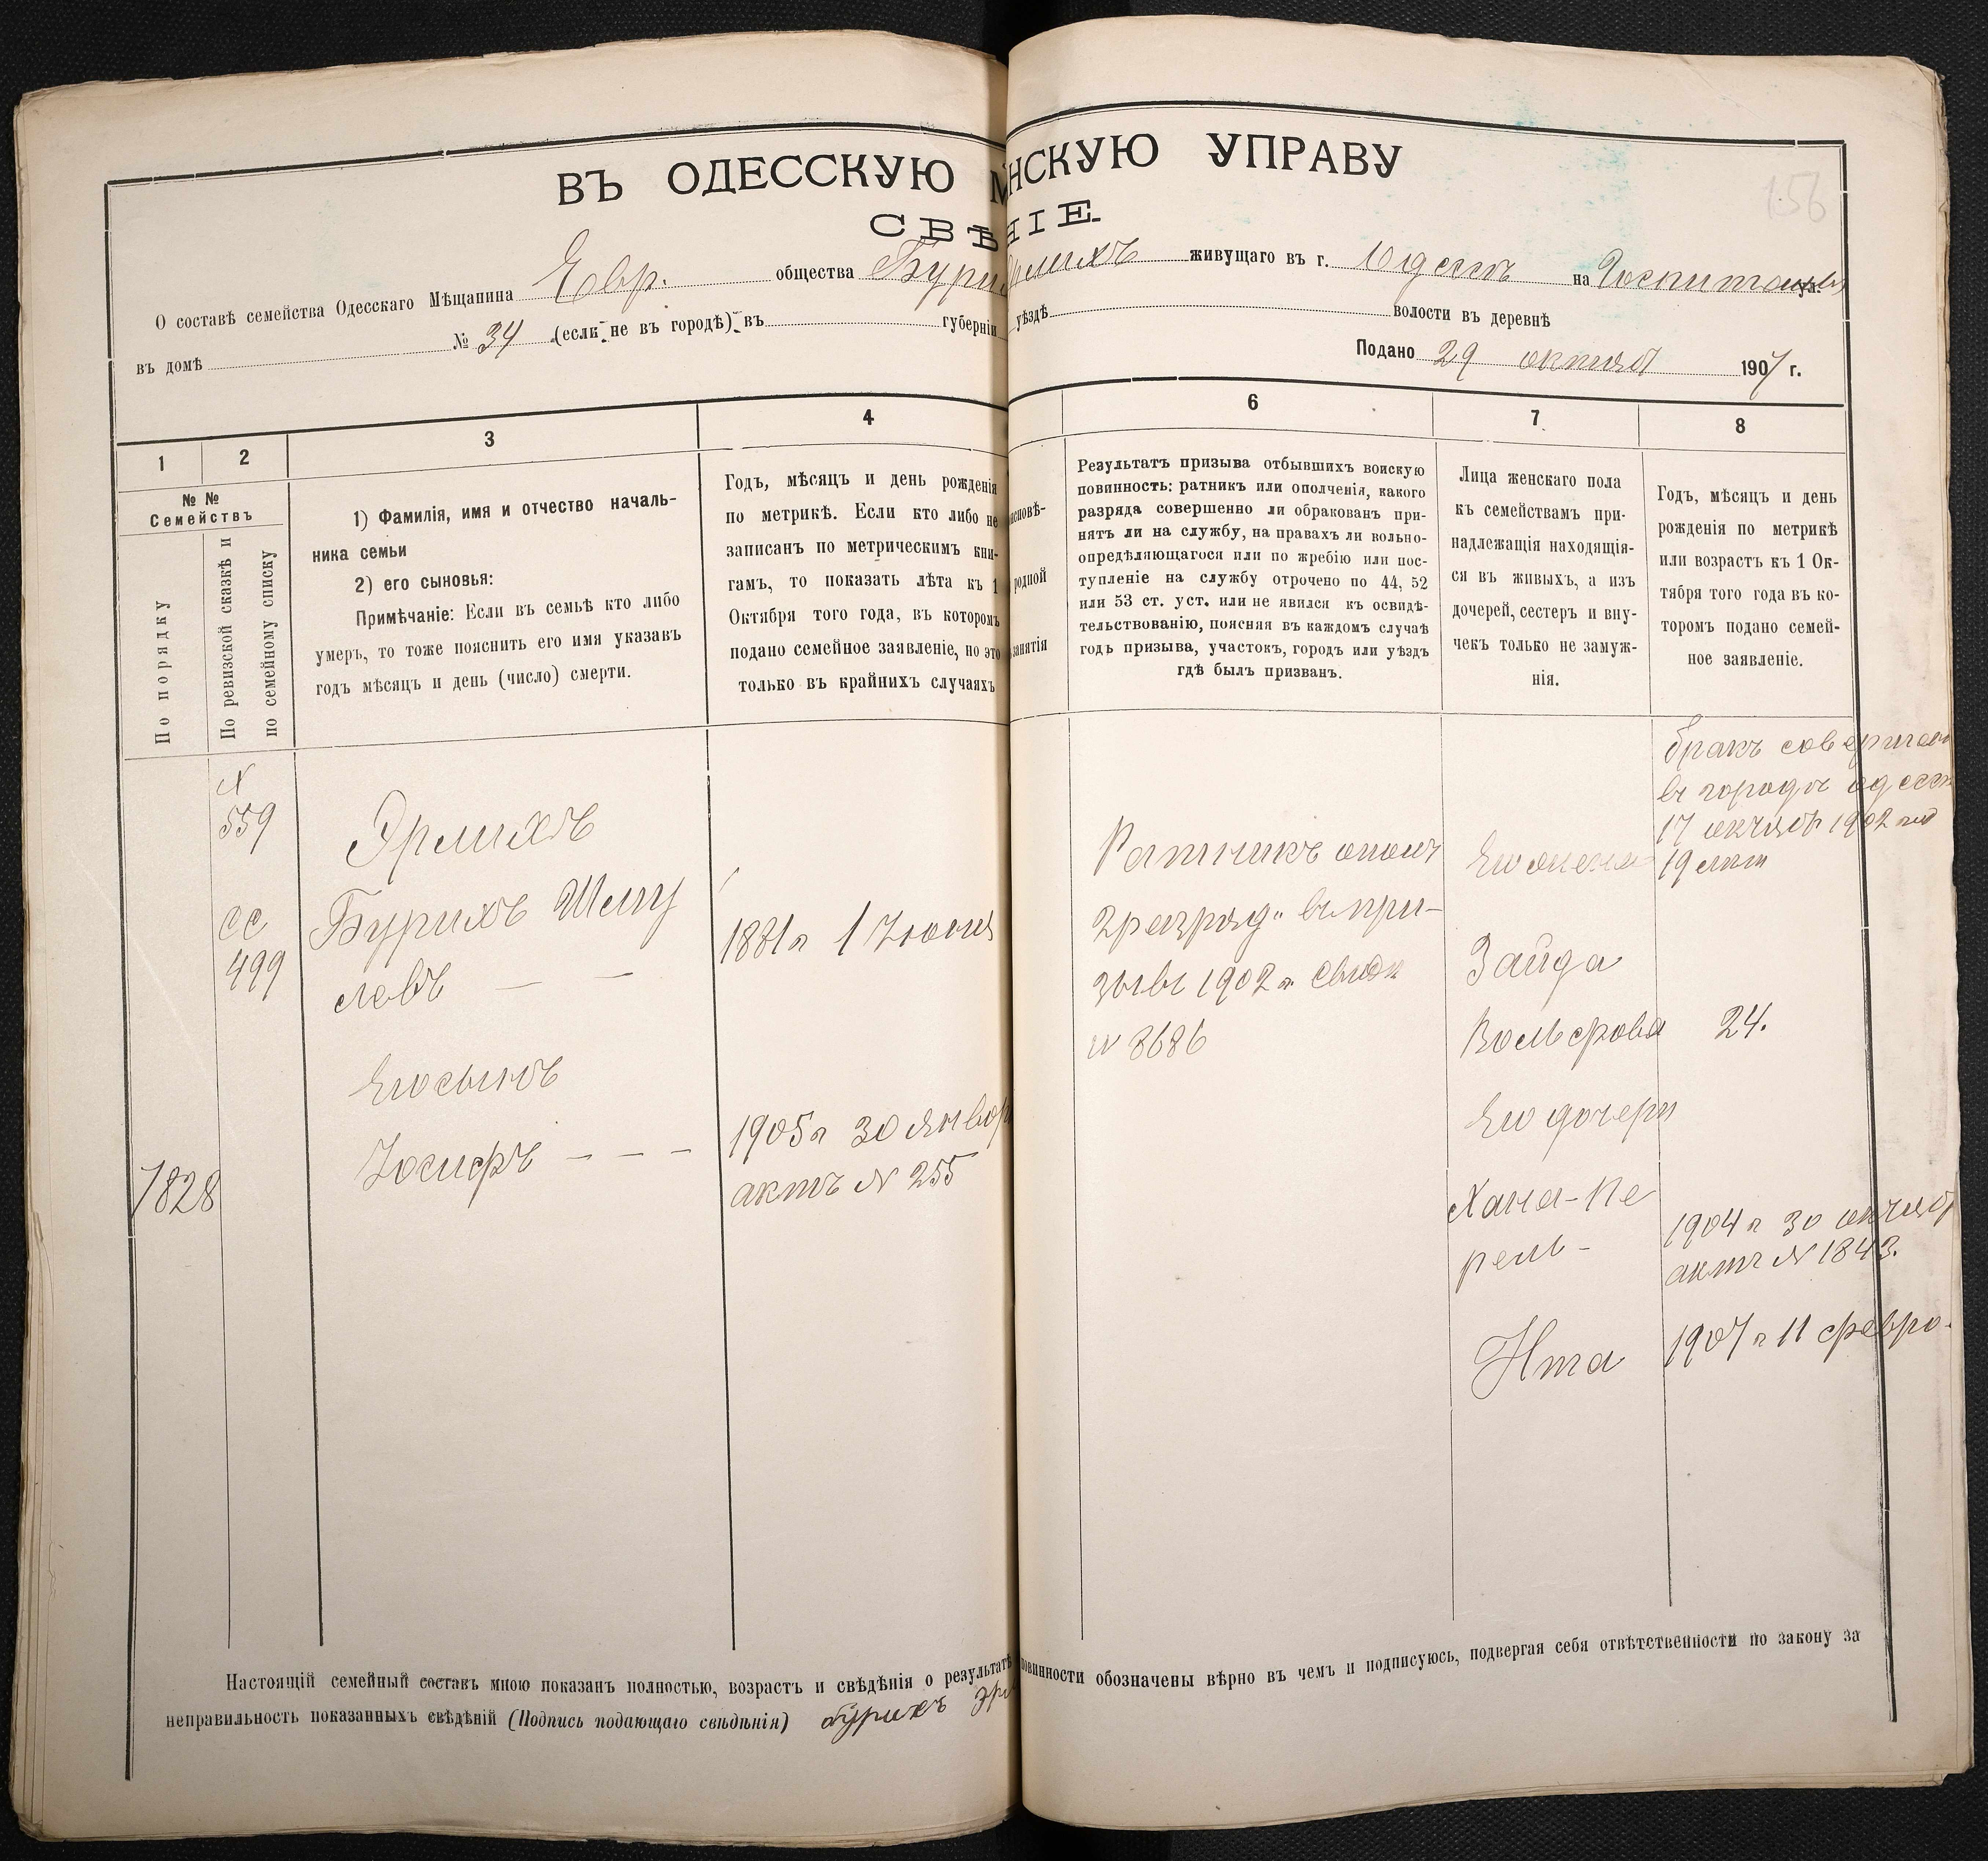 ВЪ ОДЕССКУЮ М НСКУЮ УПРАВУ
СВѢ НІЕ
156
О составѣ семейства Одесскаго Мѣщанина Евр. общества Бури Эрлихъ живущаго въ г. Одессѣ на ул.
въ домѣ № 34 (если не въ городѣ) въ губерніи уѣздѣ волости въ деревнѣ
Подано 29 октяб 1907 г.
1 2 3 4 6 7 8
№ №
Семействъ
По порядку
По ревизской сказкѣ и
по семейному списку
1) Фамилія, имя и отчество началь-
ника семьи
2) его сыновья:
Примѣчаніе: Если въ семьѣ кто либо
умеръ, то тоже пояснить его имя указавъ
годъ мѣсяцъ и день (число) смерти.
Годъ, мѣсяцъ и день рожденія
по метрикѣ. Если кто либо не
записанъ по метрическимъ кни-
гамъ, то показать лѣта къ 1
Октября того года, въ которомъ
подано семейное заявленіе, но это
только въ крайнихъ случаяхъ
исповѣ-
родной
занятія
Результатъ призыва отбывшихъ воискую
повинность: ратникъ или ополченія, какого
разряда совершенно ли обракованъ при-
нятъ ли на службу, на правахъ ли вольно-
опредѣляющагося или по жребію или пос-
тупленіе на службу отрочено по 44, 52
или 53 ст. уст. или не явился къ освидѣ-
тельствованію, поясняя въ каждомъ случаѣ
годъ призыва, участокъ, городъ или уѣздъ
гдѣ былъ призванъ.
Лица женскаго пола
къ семействамъ при-
надлежащія находящія-
ся въ живыхъ, а изъ
дочерей, сестеръ и вну-
чекъ только не замуж-
нія.
Годъ, мѣсяцъ и день
рожденія по метрикѣ
или возрастъ къ 1 Ок-
тября того года въ ко-
торомъ подано семей-
ное заявленіе.
559
сс
499
7828
Эрлихъ
Бурихъ Шму
левъ — —
Его сынъ
Іосифъ — — —
1881 г 1 Іюня
1905 г 30 январ
актъ № 255
Ратникъ ополч
2 разряд. въ при-
зывъ 1902 г.
№ 8686
Его жена
Зайда
Вольфова
Его дочери
Хана-Пе
рель -
Ита
бракъ совершен
въ городѣ одесс
17 октяб 1902
19 лѣт
24.
1904 г 30 октяб
актъ № 1843.
1907 г 11 февра.
Настоящій семейный составъ мною показанъ полностью, возрастъ и свѣдѣнія о результатѣ повинности обозначены вѣрно въ чемъ и подписуюсь, подвергая себя отвѣтственности по закону за
неправильность показанныхъ свѣдѣній (Подпись подающаго свѣдѣнія) бурихъ эр